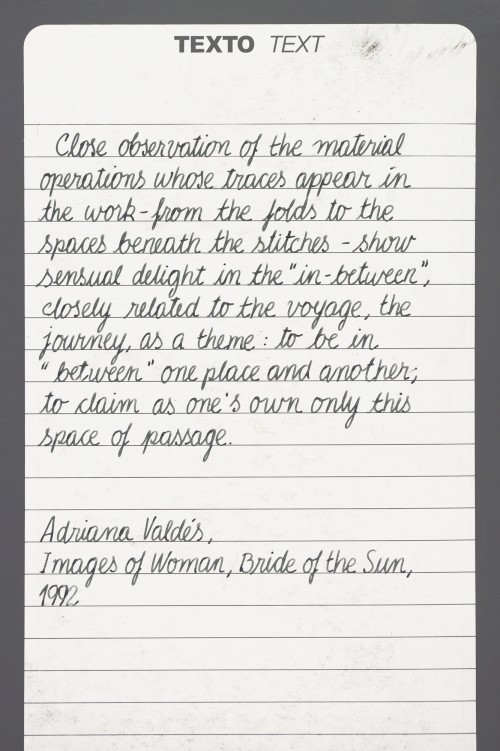 TEXTO TEXT
Close observation of the material
operations whose traces appear in
the work-from the folds to the
spaces beneath the stitches - show
sensual delight in the "in-between",
closely related to the voyage, the
journey, as a theme : to be in
" between " one place and another;
to claim as one's own only this
space of passage.
Adriana Valdés,
Images of Woman, Bride of the Sun,
1992